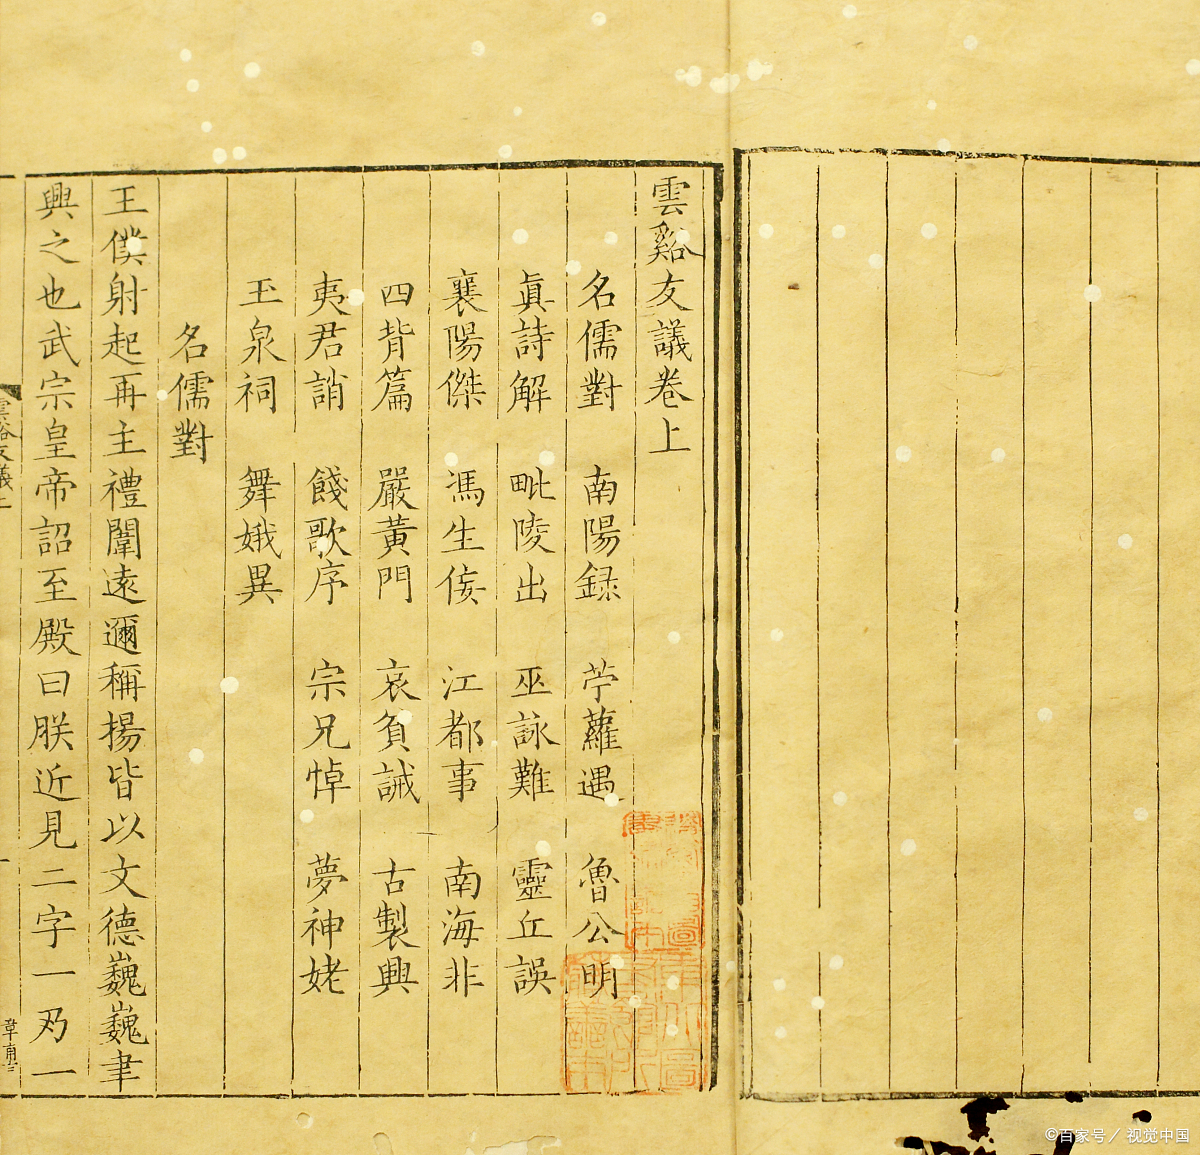 雲谿友議卷上
名儒對　南陽録　苧蘿遇　魯公明
眞詩解　毗陵出　巫詠難　靈丘誤
襄陽傑　馮生佞　江都事　南海非
四背篇　嚴黃門　哀貧誡　古製興
夷君誚　餞歌序　宗兄悼　夢神姥
玉泉祠　舞娥異
名儒對
王僕射起再主禮闈遠邇稱揚皆以文德巍巍聿
興之也武宗皇帝詔至殿曰朕近見二字一夃一
友議上
©百家号／视觉中国